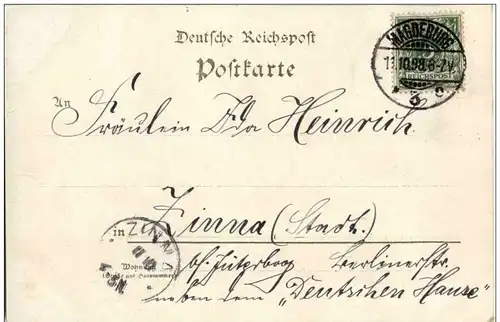 Deutsche Reichspost
Postkarte
MAGDEBURG
11.10.98. 6-7 N.
* 3 c
REICHSPOST
An
Fräulein Ida Heinrich.
in Zinna (Stadt.)
ZINNA
Wohnung
(Straße und Hausnummer)
bei Jüterbog Berlinerstr.
neben dem "Deutschen Hause"